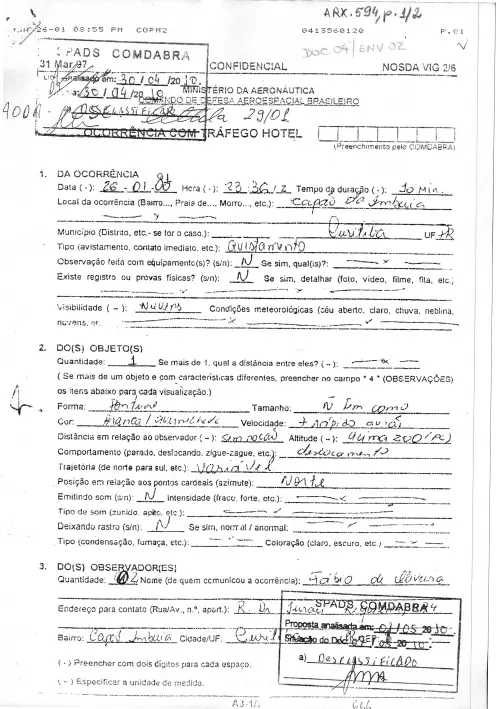 ARX.594, p.1/2
26-01 08:55 PM COPM2 0413560120 P.01
DOC 04/ENV 02
SPADS COMDABRA
31 Mar 97 CONFIDENCIAL NOSDA VIG 2/6
analisado em: 30/04/2010
30/04/20 MINISTÉRIO DA AERONÁUTICA
COMANDO DE DEFESA AEROESPACIAL BRASILEIRO
DESCLASSIFICADO 29/01
OCORRÊNCIA COM TRÁFEGO HOTEL
(Preenchimento pelo COMDABRA)
1. DA OCORRÊNCIA
Data (·): 26-01- Hora (·): 23:36/Z Tempo da duração (·): 10 Min.
Local da ocorrência (Bairro..., Praia de..., Morro..., etc.): Capão da Imbuia
Município (Distrito, etc.- se for o caso.): Curitiba UF PR
Tipo (avistamento, contato imediato, etc.): Avistamento
Observação feita com equipamento(s)? (s/n): N Se sim, qual(is)?:
Existe registro ou provas físicas? (s/n): N Se sim, detalhar (foto, vídeo, filme, fita, etc.;
Visibilidade (~): Nuvens Condições meteorológicas (céu aberto, claro, chuva, neblina,
nuvens, etc.
2. DO(S) OBJETO(S)
Quantidade: 1 Se mais de 1, qual a distância entre eles? (~):
( Se mais de um objeto e com características diferentes, preencher no campo " 4 " (OBSERVAÇÕES)
os itens abaixo para cada visualização.)
Forma: Pontual Tamanho:
Cor: Branca / avermelhada Velocidade: + rápido avião
Distância em relação ao observador (~): sem noção Altitude (~): Acima 200'
Comportamento (parado, deslocando, zigue-zague, etc.): deslocamento
Trajetória (de norte para sul, etc.): Variável
Posição em relação aos pontos cardeais (azimute): Norte
Emitindo som (s/n): N intensidade (fraco, forte, etc.):
Tipo de som (zunido, apito, etc.):
Deixando rastro (s/n): N Se sim, normal / anormal:
Tipo (condensação, fumaça, etc.): Coloração (claro, escuro, etc.)
3. DO(S) OBSERVADOR(ES)
Quantidade: 02 Nome (de quem comunicou a ocorrência): Fábio de Oliveira
Endereço para contato (Rua/Av., n.º, apart.): R. Dr
SPADS COMDABRA
Proposta analisada em: 01/05 2010
Bairro: Capão Imbuia Cidade/UF.
Situação do Doc 05 2010
a) DESCLASSIFICADO
(·) Preencher com dois dígitos para cada espaço.
(~) Especificar a unidade de medida.
A3-1/